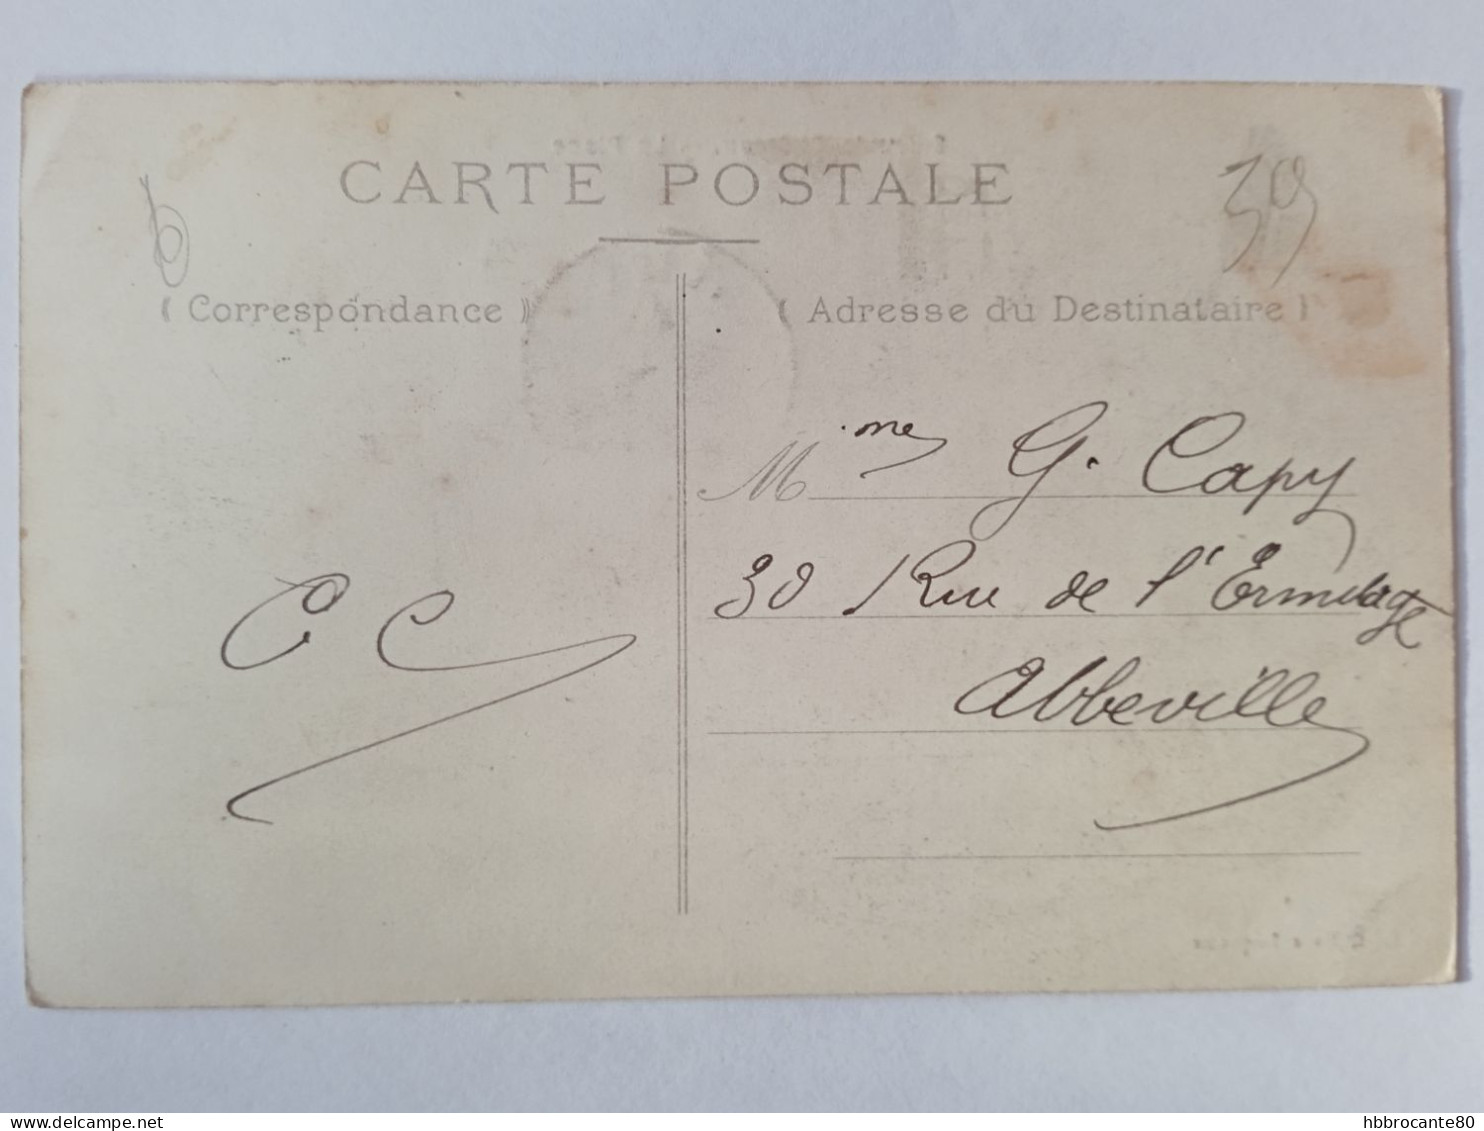 CARTE POSTALE
39
6
( Correspondance )
( Adresse du Destinataire )
Mme G. Capy
30 Rue de l'Ermitage
Abbeville
C C
delcampe.net
hbbrocante80